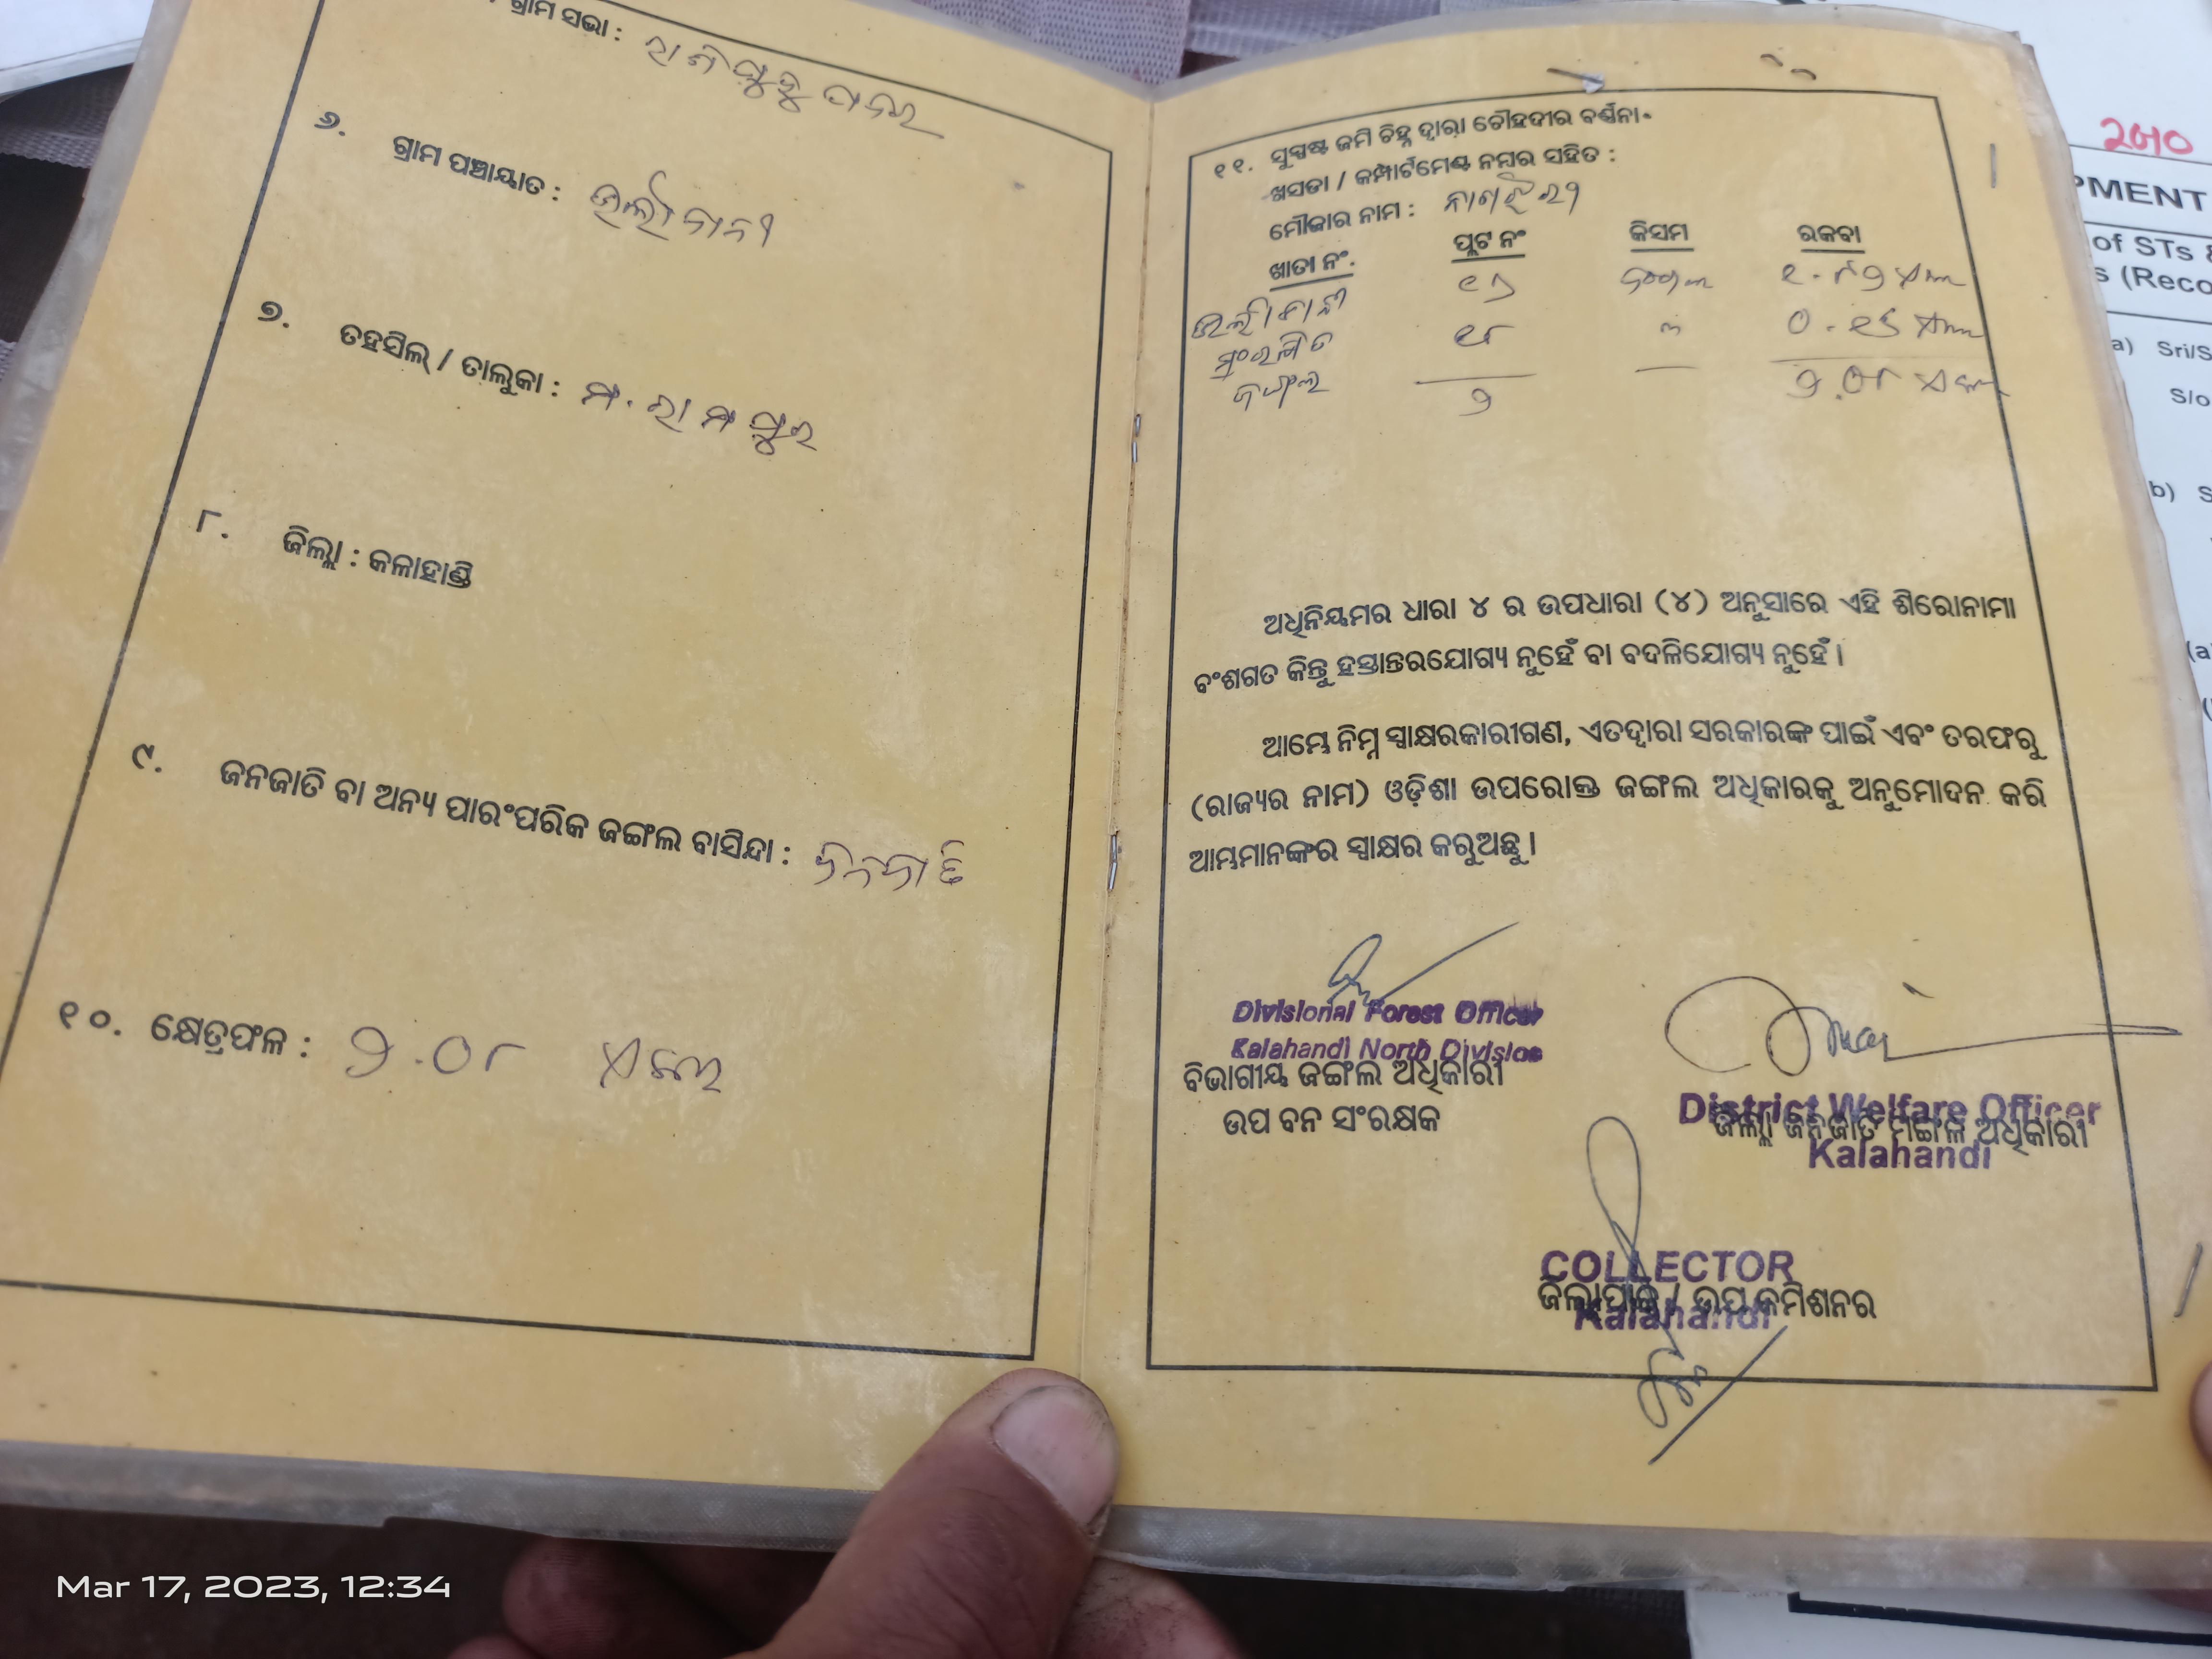 ଗ୍ରାମ ସଭା :
୬. ଗ୍ରାମ ପଞ୍ଚାୟାତ :
୭. ତହସିଲ୍ / ତାଲୁକା : ମ. ରାମପୁର
୮. ଜିଲ୍ଲା : କଳାହାଣ୍ଡି
୯. ଜନଜାତି ବା ଅନ୍ୟ ପାରଂପରିକ ଜଙ୍ଗଲ ବାସିନ୍ଦା : ଜନଜାତି
୧୦. କ୍ଷେତ୍ରଫଳ : ୨.୦୮ ଏକର
୧୧. ସୁସ୍ପଷ୍ଟ ଜମି ଚିହ୍ନ ଦ୍ୱାରା ଚୌହଦୀର ବର୍ଣ୍ଣନା
ଖସଡା / କମ୍ପାର୍ଟମେଣ୍ଟ ନମ୍ବର ସହିତ :
ମୌଜାର ନାମ :
ଖାତା ନଂ. ପ୍ଲଟ ନଂ କିସମ ରକବା
ସଂରକ୍ଷିତ
ଜଙ୍ଗଲ ୨ ୨.୦୮ ଏକର
ଅଧିନିୟମର ଧାରା ୪ ର ଉପଧାରା (୪) ଅନୁସାରେ ଏହି ଶିରୋନାମା
ବଂଶଗତ କିନ୍ତୁ ହସ୍ତାନ୍ତରଯୋଗ୍ୟ ନୁହେଁ ବା ବଦଳିଯୋଗ୍ୟ ନୁହେଁ ।
ଆମ୍ଭେ ନିମ୍ନ ସ୍ୱାକ୍ଷରକାରୀଗଣ, ଏତଦ୍ୱାରା ସରକାରଙ୍କ ପାଇଁ ଏବଂ ତରଫରୁ
(ରାଜ୍ୟର ନାମ) ଓଡ଼ିଶା ଉପରୋକ୍ତ ଜଙ୍ଗଲ ଅଧିକାରକୁ ଅନୁମୋଦନ କରି
ଆମ୍ଭମାନଙ୍କର ସ୍ୱାକ୍ଷର କରୁଅଛୁ ।
Divisional Forest Officer
Kalahandi North Division
ବିଭାଗୀୟ ଜଙ୍ଗଲ ଅଧିକାରୀ
ଉପ ବନ ସଂରକ୍ଷକ
District Welfare Officer
ଜିଲ୍ଲା ଜନଜାତି ମଙ୍ଗଳ ଅଧିକାରୀ
Kalahandi
COLLECTOR
ଜିଲ୍ଲାପାଳ / ଉପ କମିଶନର
Kalahandi
PMENT
of STs &
s (Reco
a) Sri/S
S/o
b) S
(a
Mar 17, 2023, 12:34